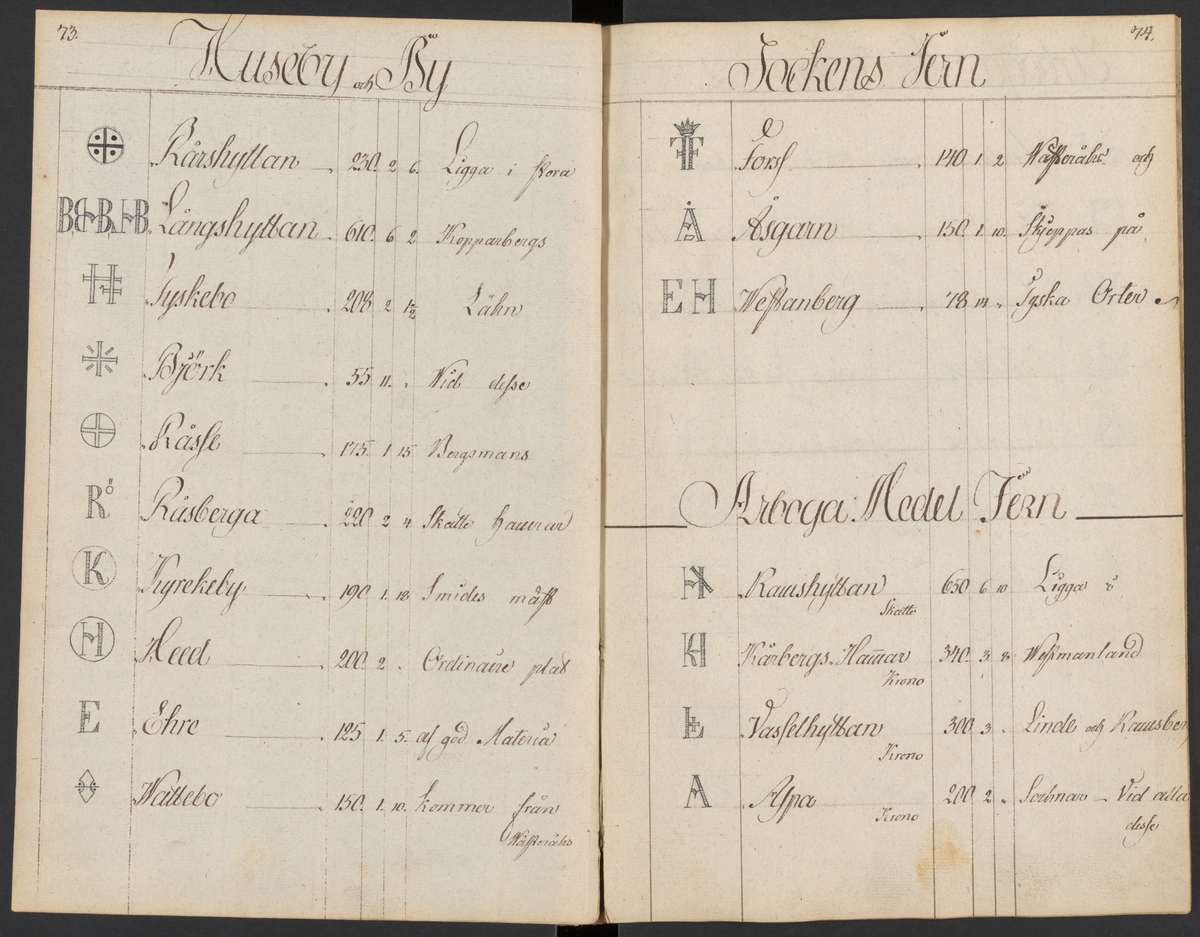 73.
Huseby och By
Rårshyttan 230. 2 6. Ligga i stora
B,B-B,HB. Långshyttan 610. 6 2 Kopparbergs
H Tyskebo 208 2 1½ Lähn
Björk 55 11. Vid desse
Råsse 175. 1 15 Bergsmans
Rö Råsberga 220 2 4 Skatte hamrar
K Kyrekeby 190 1. 18 Smides mäst
H Heed 200 2 Ordinaire plat
E Ehre 125 1. 5. af god Materia
Wattebo 150. 1. 10. kommer från
Wästeråhs
74.
Sockens Jern
F Forss 140. 1 2 Wästeråhs och
Å Åsgarn 150 1. 10. Skieppas på
EH Westanberg 78 14 Tyska Orter
Arboga Medel Jern
Ramshyttan 650 6 10 Ligga i
Skatte
Kårbergs Hamar 340. 3. 8 Westmanland
Krono
Vasselhyttan 300 3 Linde och Ramsber
Krono
A Aspa 200 2 Vid alla
Krono
desse